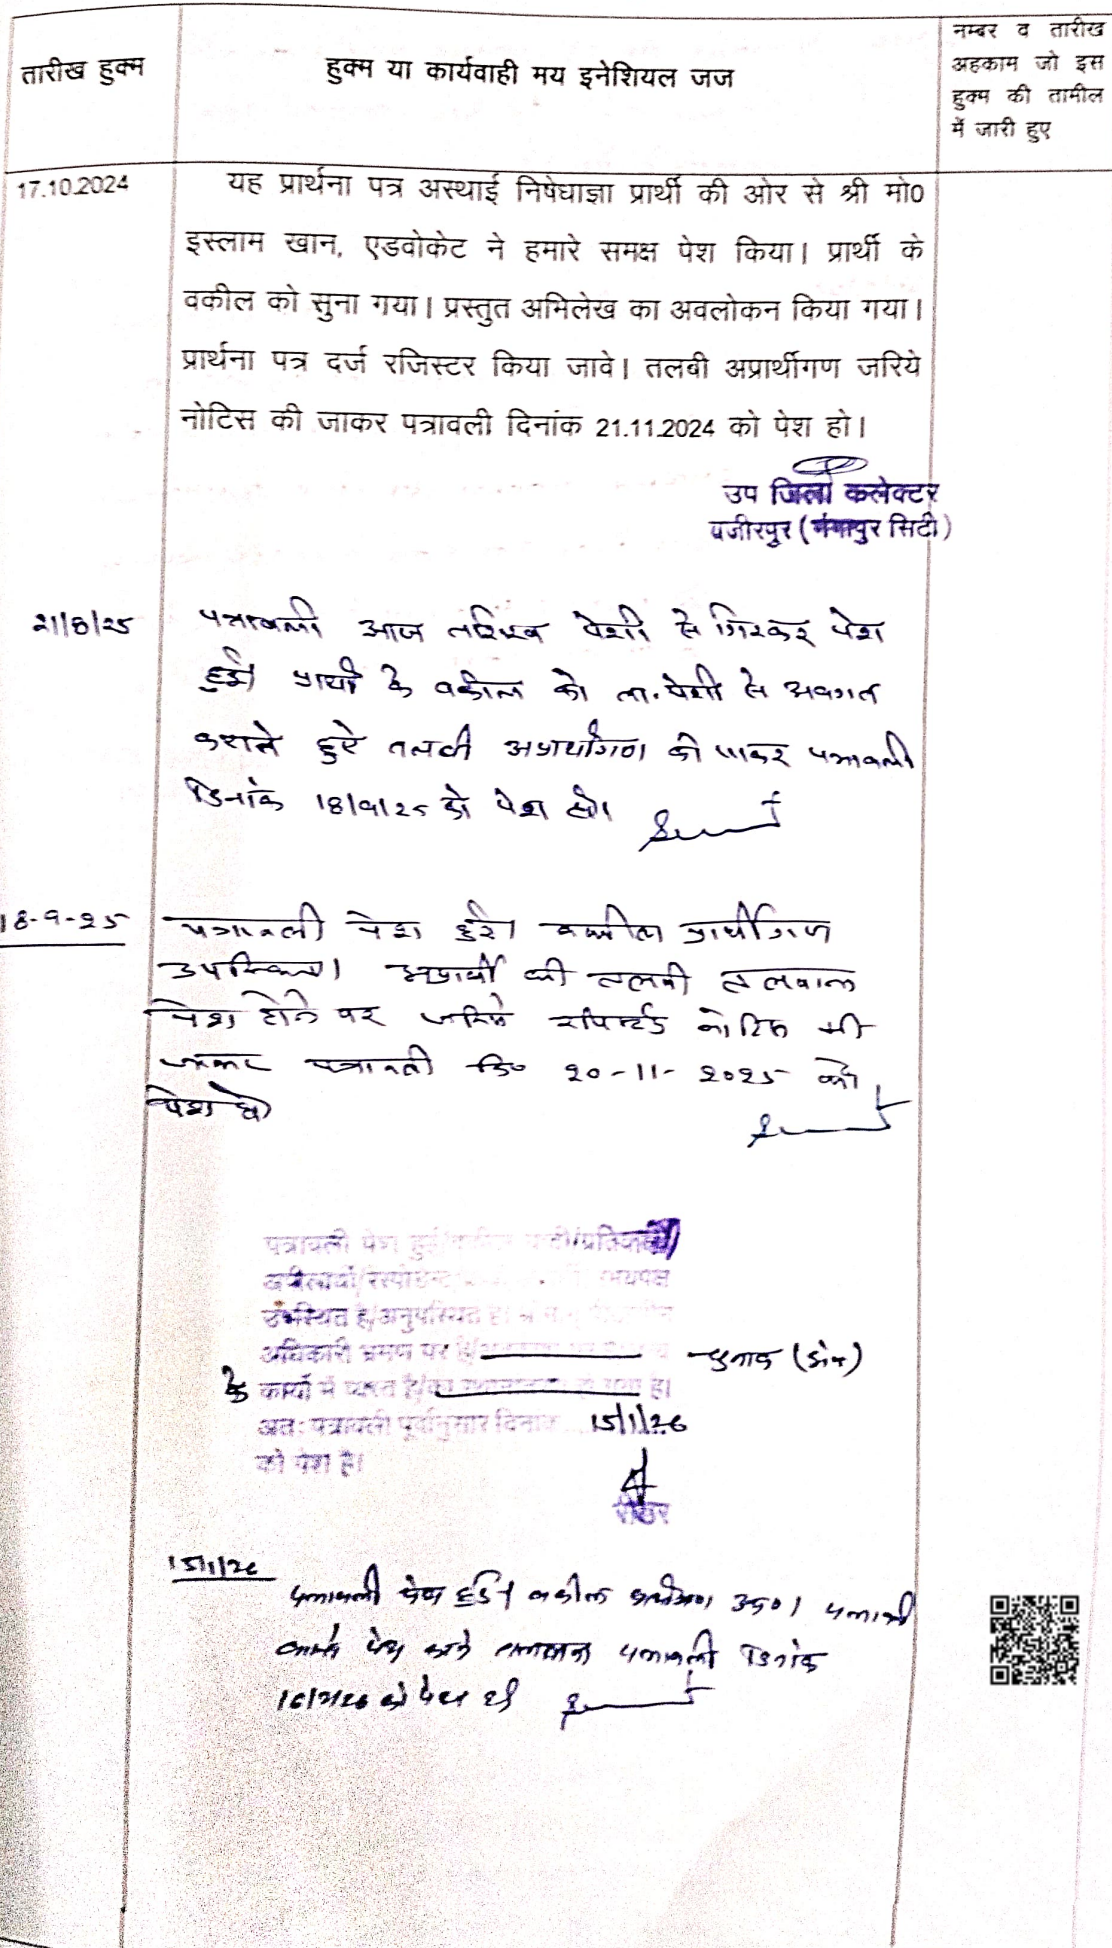 तारीख हुक्म
हुक्म या कार्यवाही मय इनेशियल जज
नम्बर व तारीख
अहकाम जो इस
हुक्म की तामील
में जारी हुए
17.10.2024
यह प्रार्थना पत्र अस्थाई निषेधाज्ञा प्रार्थी की ओर से श्री मो0
इस्लाम खान, एडवोकेट ने हमारे समक्ष पेश किया। प्रार्थी के
वकील को सुना गया। प्रस्तुत अभिलेख का अवलोकन किया गया।
प्रार्थना पत्र दर्ज रजिस्टर किया जावे। तलबी अप्रार्थीगण जरिये
नोटिस की जाकर पत्रावली दिनांक 21.11.2024 को पेश हो।
उप जिला कलेक्टर
वजीरपुर (गंगापुर सिटी)
21/8/25
पत्रावली आज तारिख पेशी से गिरकर पेश
हुई। प्रार्थी के वकील को ता.पेशी से अवगत
कराते हुऐ तलबी अप्रार्थीगण की जाकर पत्रावली
दिनांक 18/9/25 को पेश हो।
18-9-25
पत्रावली पेश हुई। वकील प्रार्थीगण
उपस्थित। अप्रार्थी की तलबी तलवाना
पेश होने पर जरिये नोटिस की
जाकर पत्रावली दि० 20-11-2025 को
पेश हो
पत्रावली पेश हुई
उपस्थित है/अनुपस्थित है।
अधिकारी भ्रमण पर है/ चुनाव
के कार्यो में व्यस्त है/का स्थानान्तरण हो गया है।
अतः पत्रावली पूर्वानुसार दिनांक 15/1/26
को पेश है।
रीडर
15/1/26
पत्रावली पेश हुई। वकील प्रार्थीगण उप०। पत्रावली
पेश पत्रावली दिनांक
को पेश हो